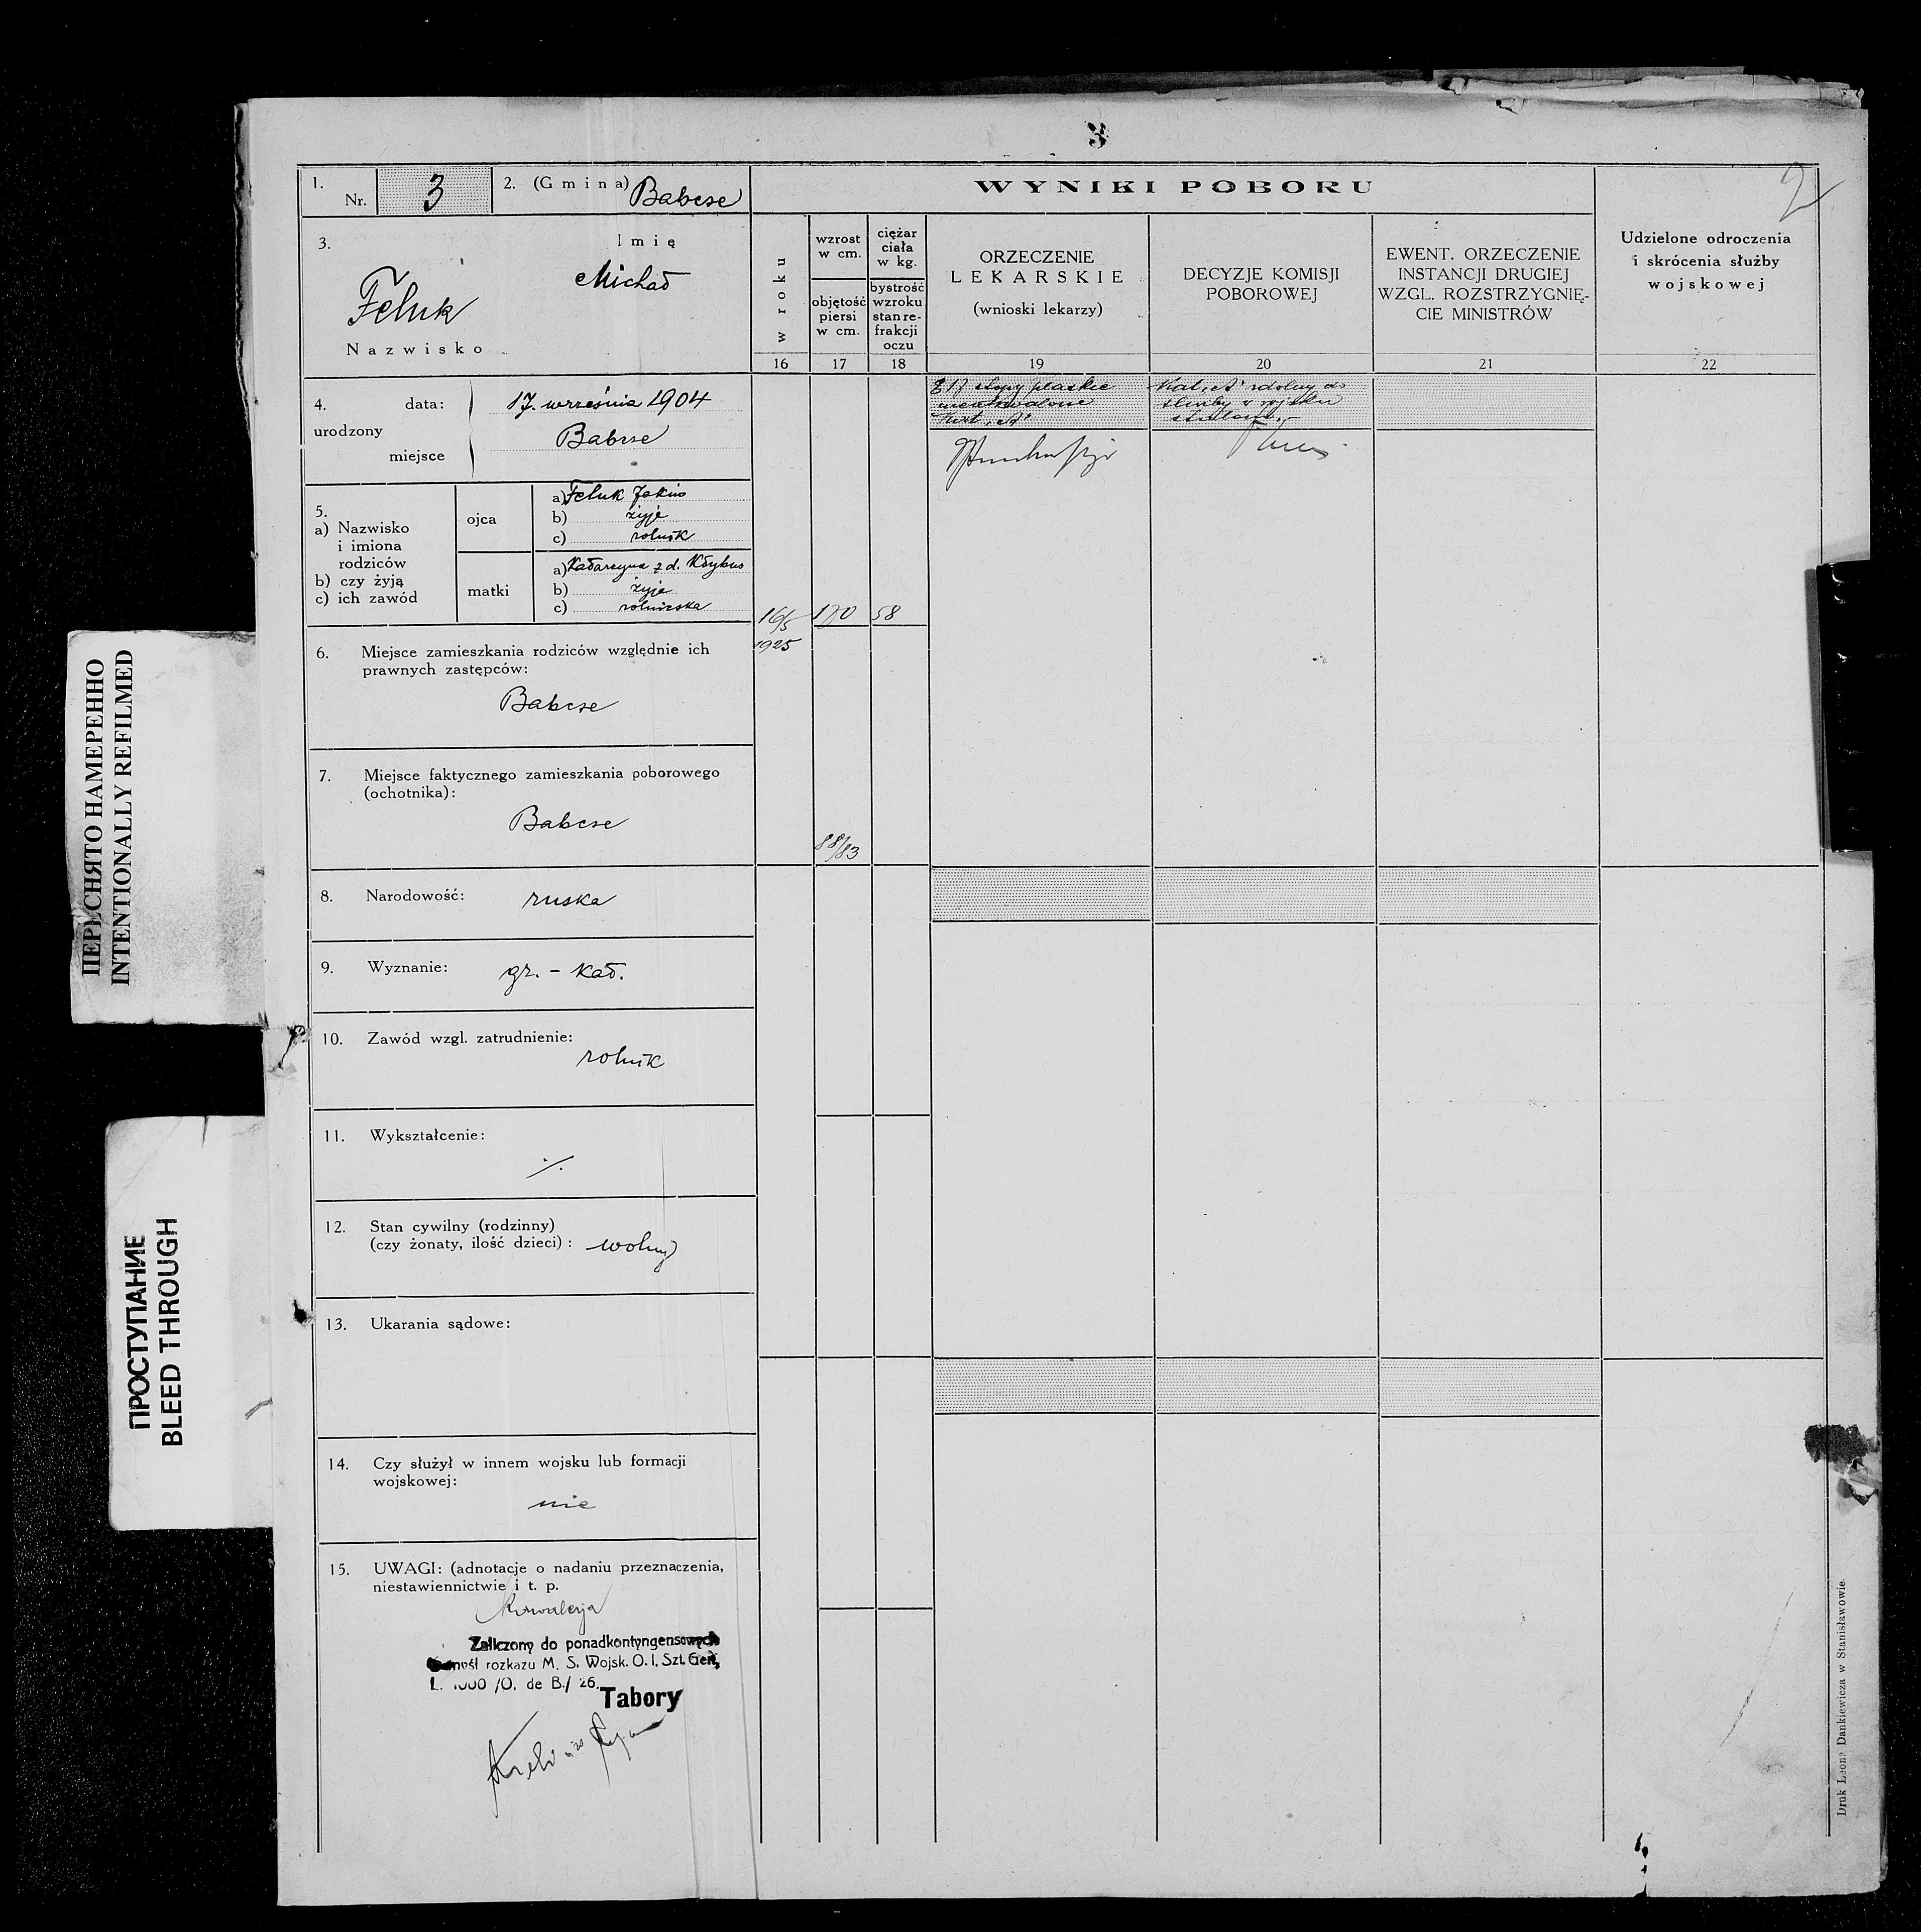 3
2
1. Nr. 3
2. (Gmina) Babcse
3. Imię
Michał
Feluk
Nazwisko
4. urodzony
data: 17. września 1904
miejsce Babcse
5.
a) Nazwisko
i imiona
rodziców
b) czy żyją
c) ich zawód
ojca
a) Feluk
b) żyje
c) rolnik
matki
a) Katarzyna z d.
b) żyje
c) rolniczka
6. Miejsce zamieszkania rodziców względnie ich
prawnych zastępców:
Babcse
7. Miejsce faktycznego zamieszkania poborowego
(ochotnika):
Babcse
8. Narodowość: ruska
9. Wyznanie: gr. - kat.
10. Zawód wzgl. zatrudnienie:
rolnik
11. Wykształcenie:
12. Stan cywilny (rodzinny)
(czy żonaty, ilość dzieci): wolny
13. Ukarania sądowe:
14. Czy służył w innem wojsku lub formacji
wojskowej:
nie
15. UWAGI: (adnotacje o nadaniu przeznaczenia,
niestawiennictwie i t. p.
Zaliczony do ponadkontyngensowych
myśl rozkazu M. S. Wojsk. O. I. Szt. Gen.
L. 1000 /O. de B./ 26.
Tabory
WYNIKI POBORU
w roku
16
wzrost
w cm.
objętość
piersi
w cm.
17
ciężar
ciała
w kg.
bystrość
wzroku
stan re-
frakcji
oczu
18
ORZECZENIE
LEKARSKIE
(wnioski lekarzy)
19
DECYZJE KOMISJI
POBOROWEJ
20
EWENT. ORZECZENIE
INSTANCJI DRUGIEJ
WZGL. ROZSTRZYGNIĘ-
CIE MINISTRÓW
21
Udzielone odroczenia
i skrócenia służby
wojskowej
22
16/5
1925
170
58
88/83
stopy płaskie
Kat. "A"
Kat. "A" zdolny do
służby w wojsku
Druk Leona Dankiewicza w Stanisławowie.
ПЕРЕСНЯТО НАМЕРЕННО
INTENTIONALLY REFILMED
ПРОСТУПАНИЕ
BLEED THROUGH